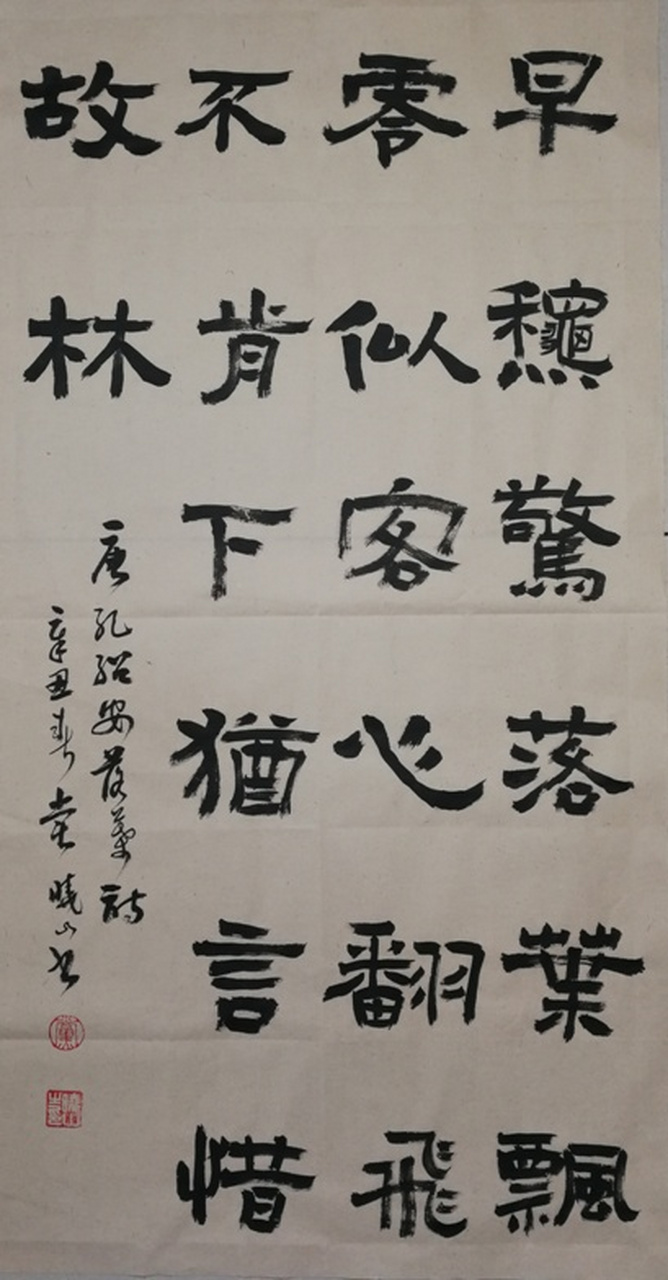 早龝驚落葉飄
零似客心翻飛
不肯下猶言惜
故林
唐孔紹安落葉詩
辛丑春党曉山书